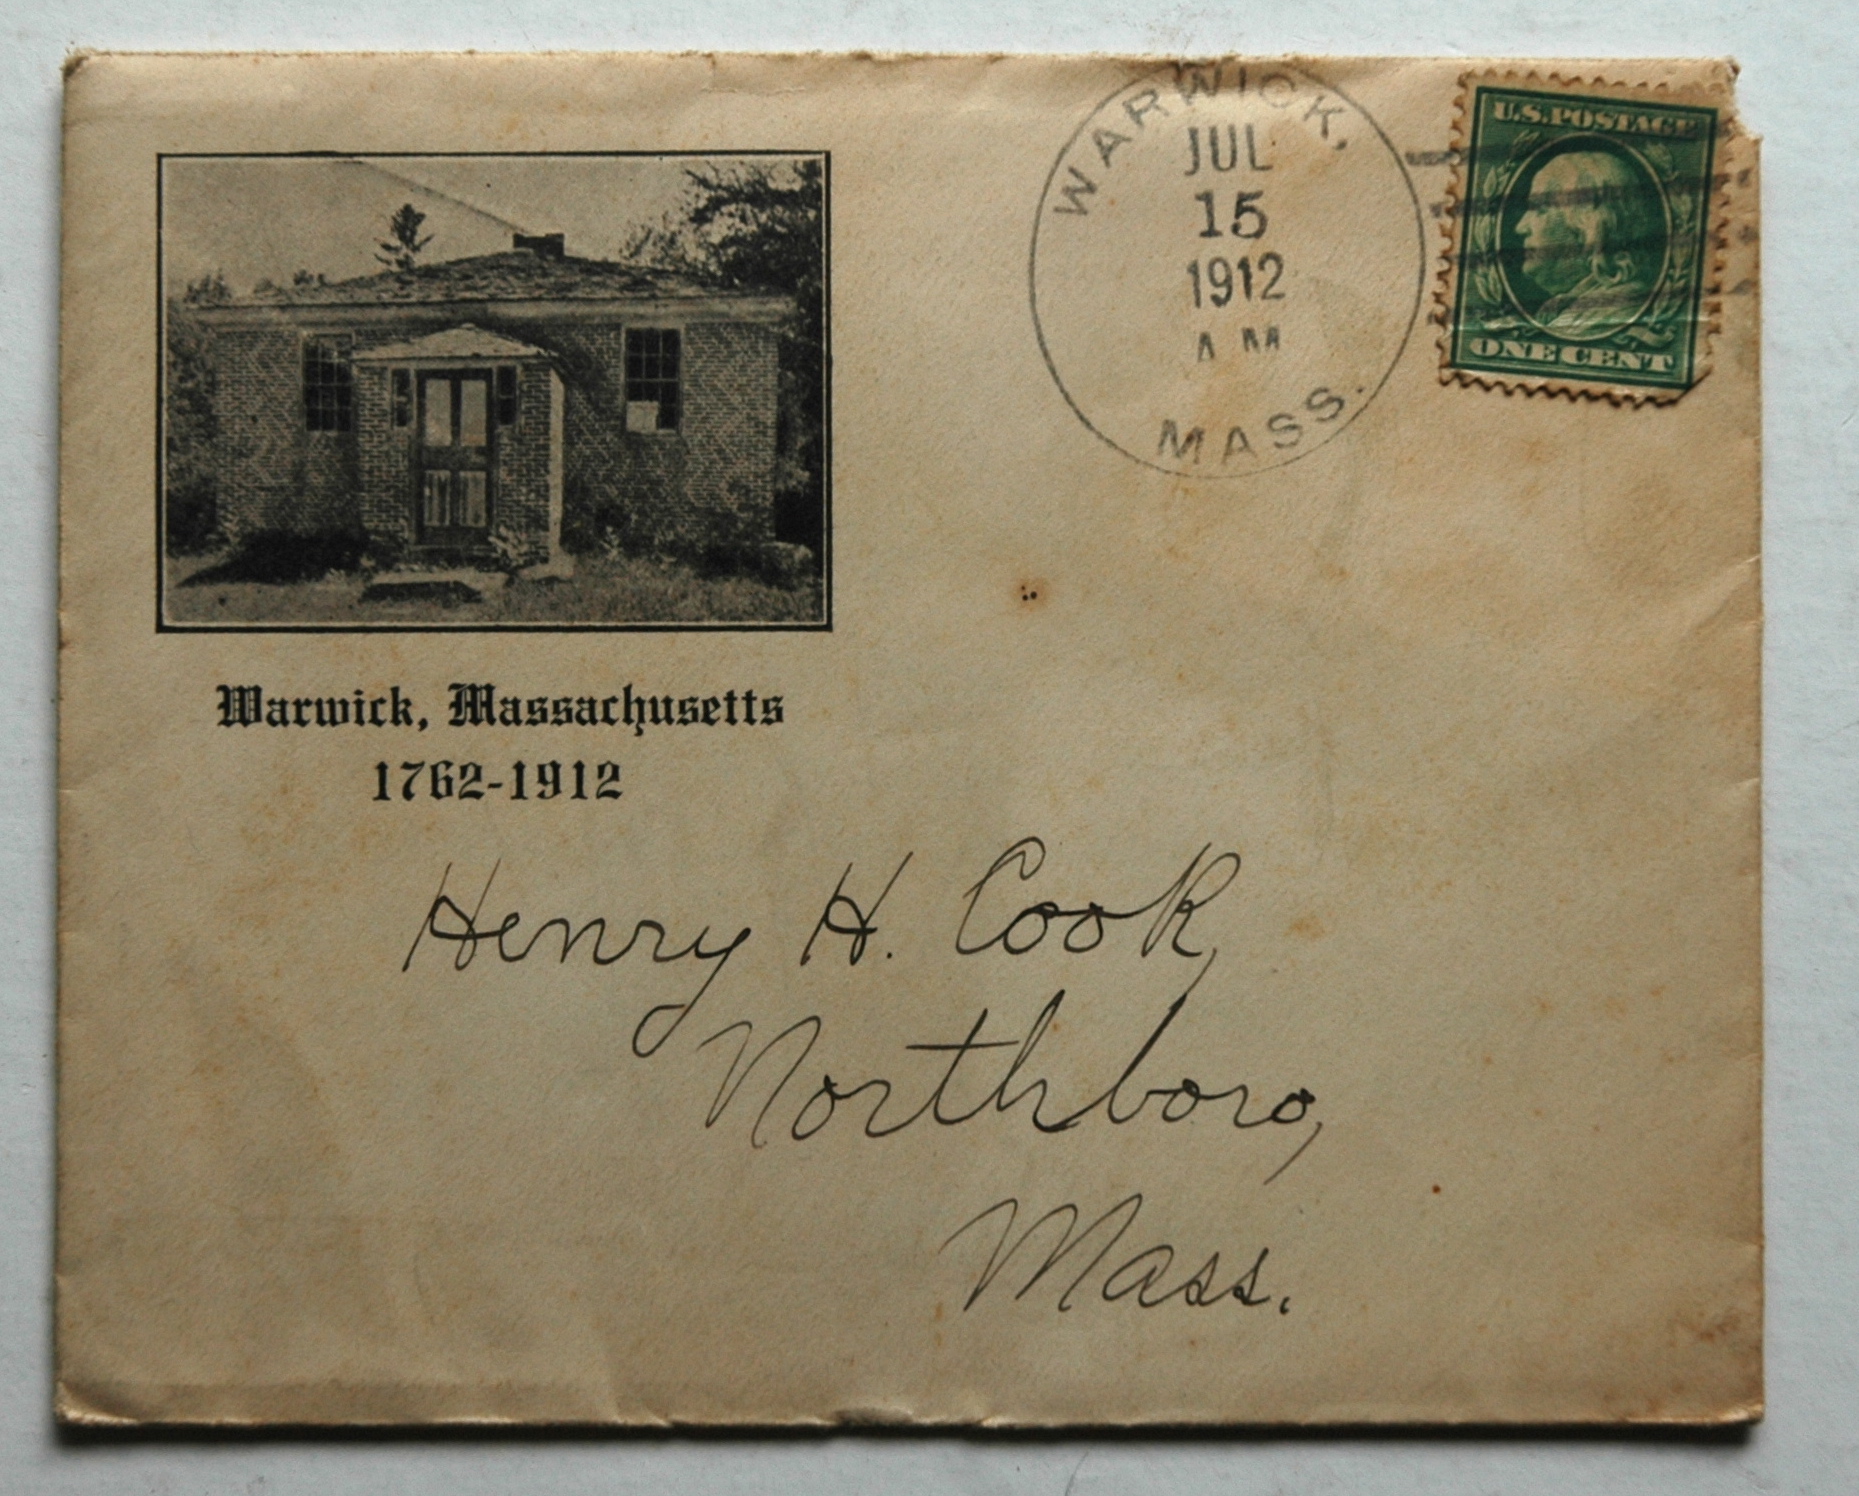 WARWICK,
JUL
15
1912
A M
MASS.
U.S. POSTAGE
ONE CENT
Warwick, Massachusetts
1762-1912
Henry H. Cook,
Northboro,
Mass.